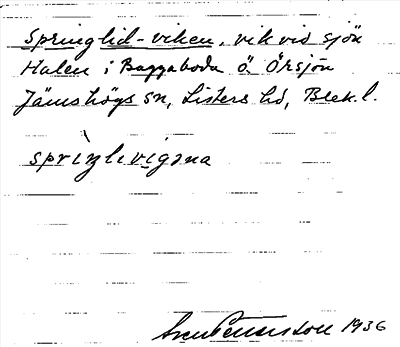 Springlid-viken, vik vid sjön
Halen i Baggaboda ö. Örsjön
Jämshögs sn, Listers hd, Blek.l.
sprìŋlivigəna
Sven Benson 1936